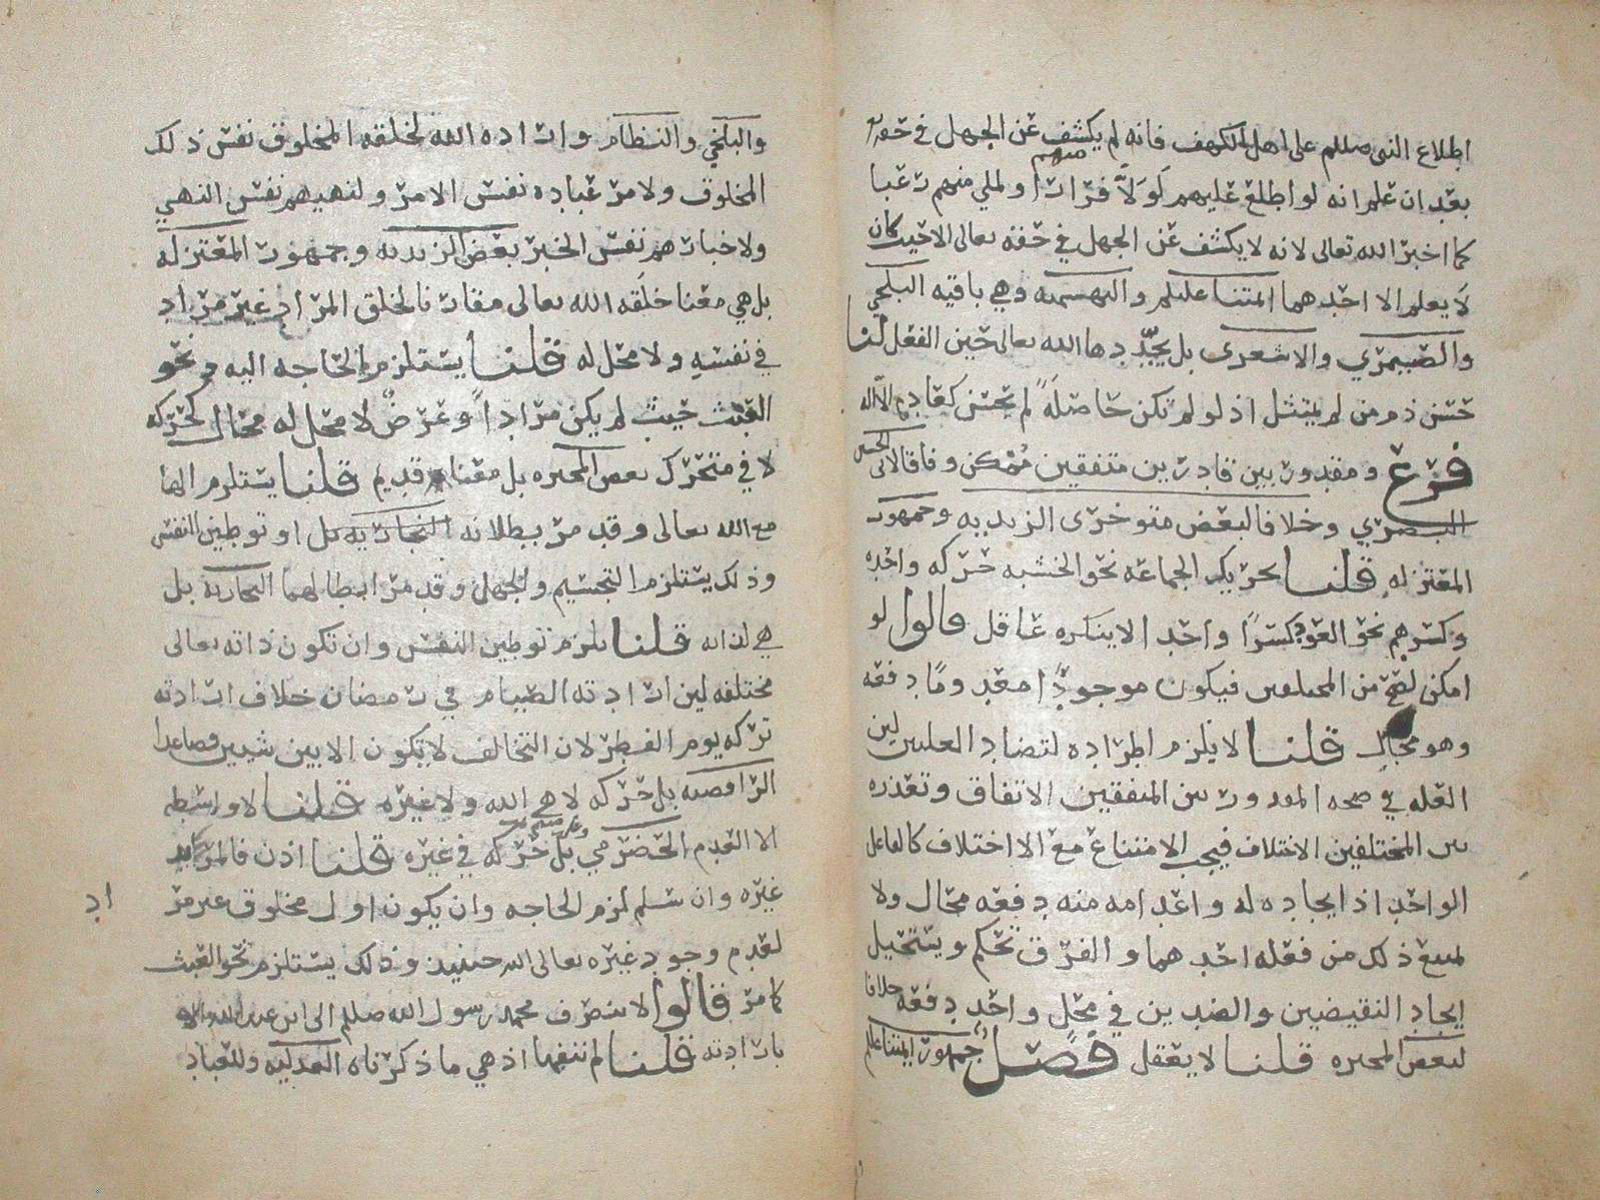 اطلاع النبي صللم على اهل الكهف فانه لم يكشف عن الجهل في حقه
بعد ان علم انه لو اطلع عليهم لولا منهم فرارا ولملي منهم رعبا
كما اخبر الله تعالى لانه لا يكشف عن الجهل في حقه تعالى الا حيث كان
لا يعلم الا احدهما المتنا عليلم والبهشميه وهي باقيه البلخي
والصيمري والاشعري بل يجددها الله تعالى حين الفعل لنا
حسن ذم من لم يمتثل اذ لو لم تكن حاصله لم يحسن كعادم الاله
فرع ومقدور بين قادرين متفقين ممكن وفاقا لابي الحسين
البصري وخلافا لبعض متوخرى الزيديه وجمهور
المعتزله قلنا تحريك الجماعه نحو الخشبه حركه واحده
وكسرهم نحو العود كسرا واحد الا ينكره عاقل قالوا لو
امكن لصح من المختلفين فيكون موجودا معدوما دفعه
وهو محال قلنا لا يلزم اطراده لتضاد العلتين لين
العله في صحه المقدور بين المتفقين الاتفاق وتعذره
بين المختلفين الاختلاف فيجب الامتناع مع الاختلاف كالفاعل
الواحد اذ ايجاده له واعدامه منه دفعه محال ولا
لمنع ذلك من فعله احدهما والفرق تحكم ويستحيل
ايجاد النقيضين والضدين في محل واحد دفعه خلافا
لبعض المجبره قلنا لا يعقل فصل جمهور ايمتنا عللم
والبلخي والنظام وارادة الله لخلقه المخلوق نفس ذلك
المخلوق ولامر عباده نفس الامر ولنهيهم نفس النهي
ولاخبارهم نفس الخبر بعض الزيديه وجمهور المعتزله
بل هي معنا خلقه الله تعالى مقارنا لخلق المراد غير مراد
في نفسه ولا محل له قلنا يستلزم الحاجه اليه ونحو
العبث حيث لم يكن مرادا وعرض لا محل له محال كحركه
لا في متحرك بعض المجبره بل معنا قديم قلنا يستلزم الها
مع الله تعالى وقد مر بطلانه النجاريه بل او توطين النفس
وذلك يستلزم التجسيم والجهل وقد مر ابطالهما النجاريه بل
هي لذاته قلنا يلزم توطين النفس وان تكون ذاته تعالى
مختلفه لين ارادته الصيام في رمضان خلاف ارادته
تركه يوم الفطر لان التخالف لا يكون الا بين شيين فصاعدا
الرافضه بل حركه لا هي الله ولا غيره قلنا لا واسطه
الا العدم الحضرمي بل حركه في غيره قلنا اذن فالمريد
غيره وان سلم لزم الحاجه وان يكون اول مخلوق غير مر
اد
لعدم وجود غيره تعالى الله حينيذ وذلك يستلزم نحو العبث
كما مر قالوا لا ينصرف محمد رسول الله صللم الى ابن عبدالله الا
بارادته قلنا لم ننفها اذ هي ما ذكرناه العدليه وللعباد